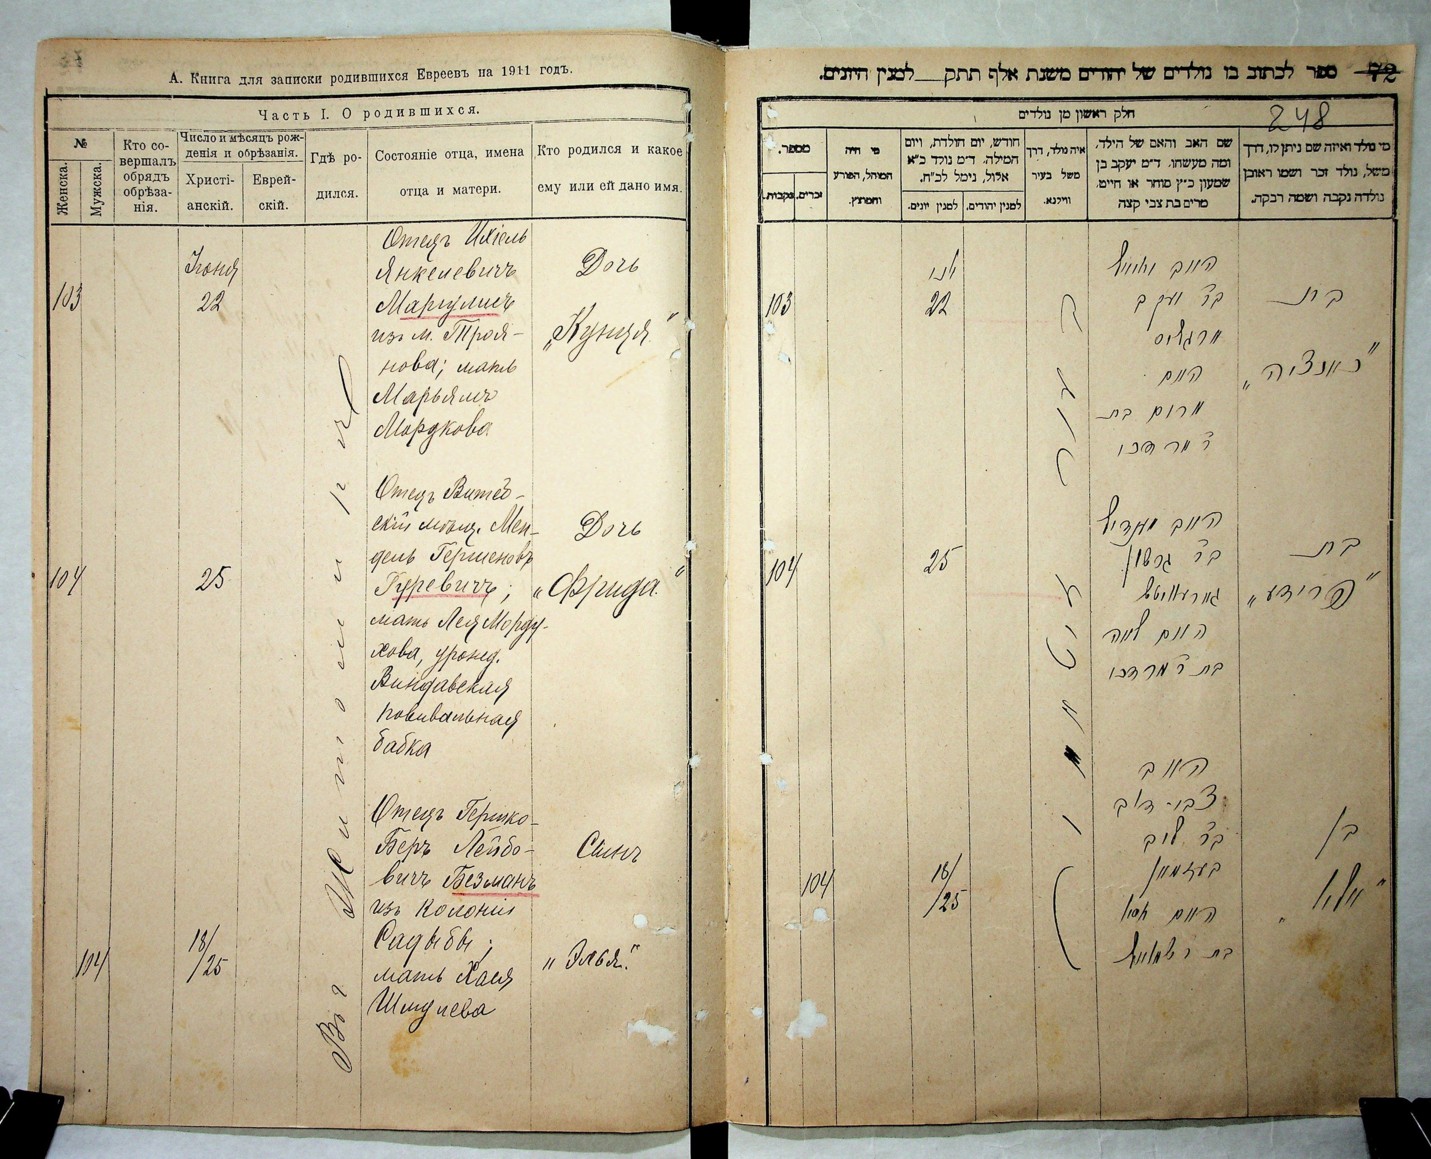 А. Книга для записки родившихся Евреевъ на 1911 годъ.
Часть I. О родившихся.
№
Женска.
Мужска.
Кто совершалъ обрядъ обрѣзанія.
Число и мѣсяцъ рожденія и обрѣзанія.
Христіанскій.
Еврейскій.
Гдѣ родился.
Состояніе отца, имена отца и матери.
Кто родился и какое ему или ей дано имя.
103
Іюня
22
Отецъ Ихіель
Янкелевичъ
Маргулисъ
изъ м. Троя-
нова; мать
Марьямъ
Мордкова
Дочь
„Кунця“
104
25
Отецъ Витеб-
скій мѣщ. Мен-
дель Гершоновъ
Гуревичъ;
мать Лея Морду-
хова, урожд.
Виндавская
повивальная
бабка
Дочь
„Фрида“
104
18/
/25
Отецъ Гершко-
Беръ Лейбо-
вичъ Безманъ
изъ колоніи
Садыбы;
мать Хася
Шмулева
Сынъ
„Элья“
Въ г. Житомирѣ
72
ספר לכתוב בו נולדים של יהודים משנת אלף תתק___ למנין היונים.
חלק ראשון מן נולדים
248
מספר.
נקבות.
זכרים.
מי היה המוהל, הפורע והמוצץ.
חודש, יום הולדת, ויום המילה. ד״מ נולד כ״א אלול, נימל לכ״ח.
למנין יונים.
למנין יהודים.
איה נולד, דרך משל בעיר ווילנא.
שם האב והאם של הילד, ומה מעשהו. ד״מ יעקב בן שמעון כ״ץ סוחר או חייט. מרים בת צבי קצה
מי נולד ואיזה שם ניתן לו, דרך משל, נולד זכר ושמו ראובן נולדה נקבה ושמה רבקה.
103
יוני
22
האב יחיאל
בר יעקב
מרגליס
האם
מרים בת
ר מרדכי
בת
„קונציה“
104
25
האב מענדיל
בר גרשון
גורעוויטש
האם לאה
בת ר מרדכי
בת
„פרידע“
104
18/
/25
האב
צבי-דוב
בר ליב
בעזמאן
האם חסיא
בת ר שמואל
בן
„אליא“